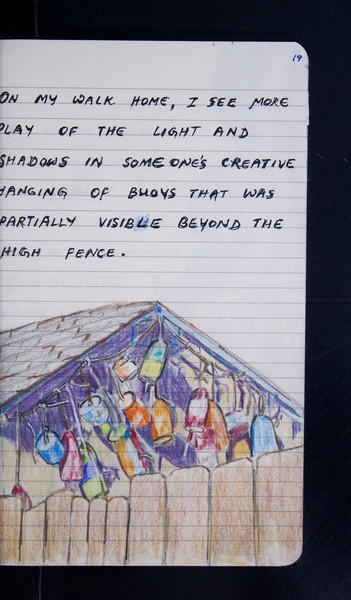 19
ON MY WALK HOME, I SEE MORE
PLAY OF THE LIGHT AND
SHADOWS IN SOMEONE'S CREATIVE
HANGING OF BUOYS THAT WAS
PARTIALLY VISIBLE BEYOND THE
HIGH FENCE.